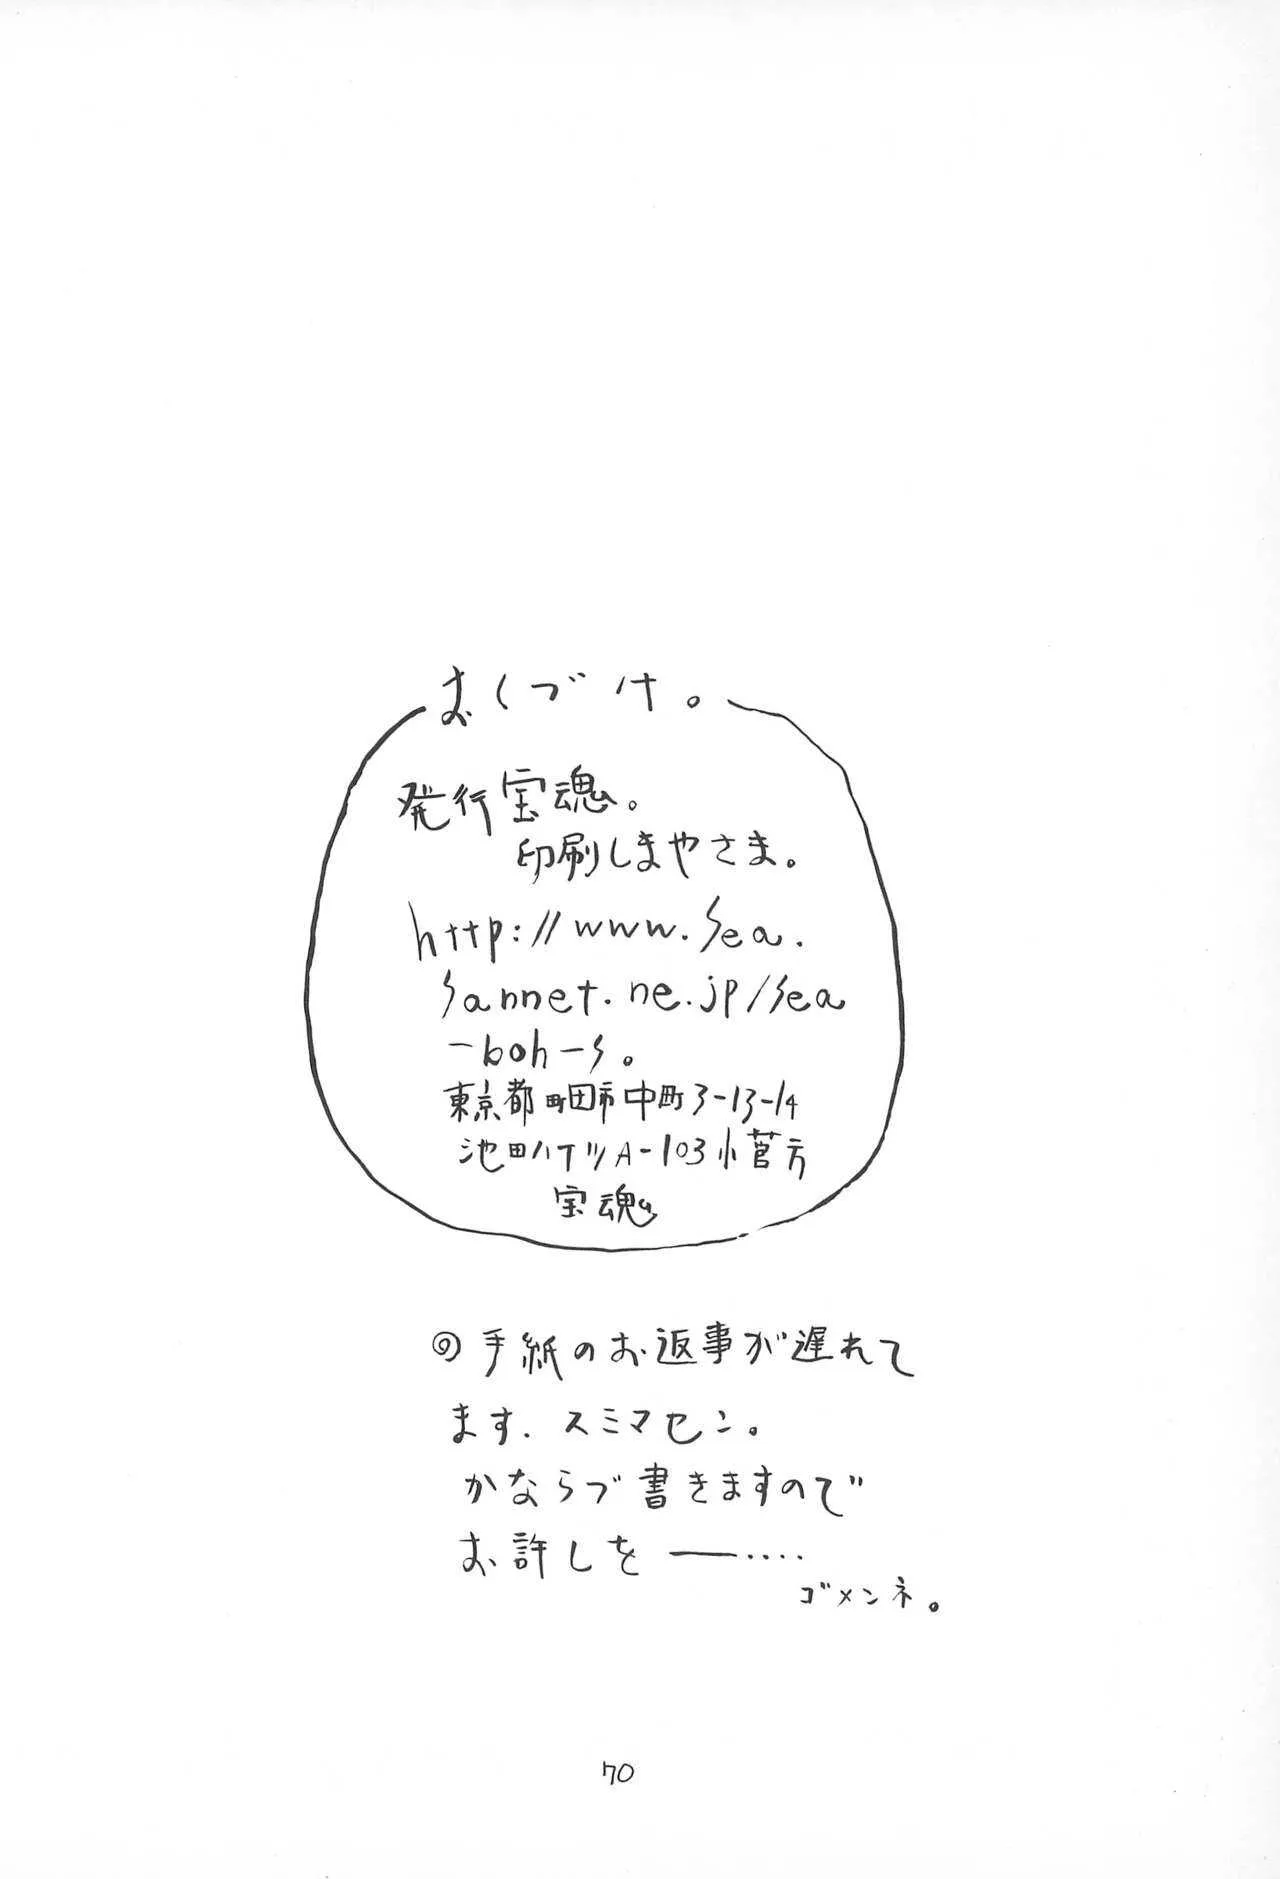 おくづけ。
発行宝魂。
印刷しまやさま。
http://www.sea.
sannet.ne.jp/sea
-boh-s。
東京都町田市中町3-13-14
池田ハイツA-103小菅方
宝魂。
◎手紙のお返事が遅れて
ます、スミマセン。
かならづ書きますので
お許しを――‥‥
ゴメンネ。
70